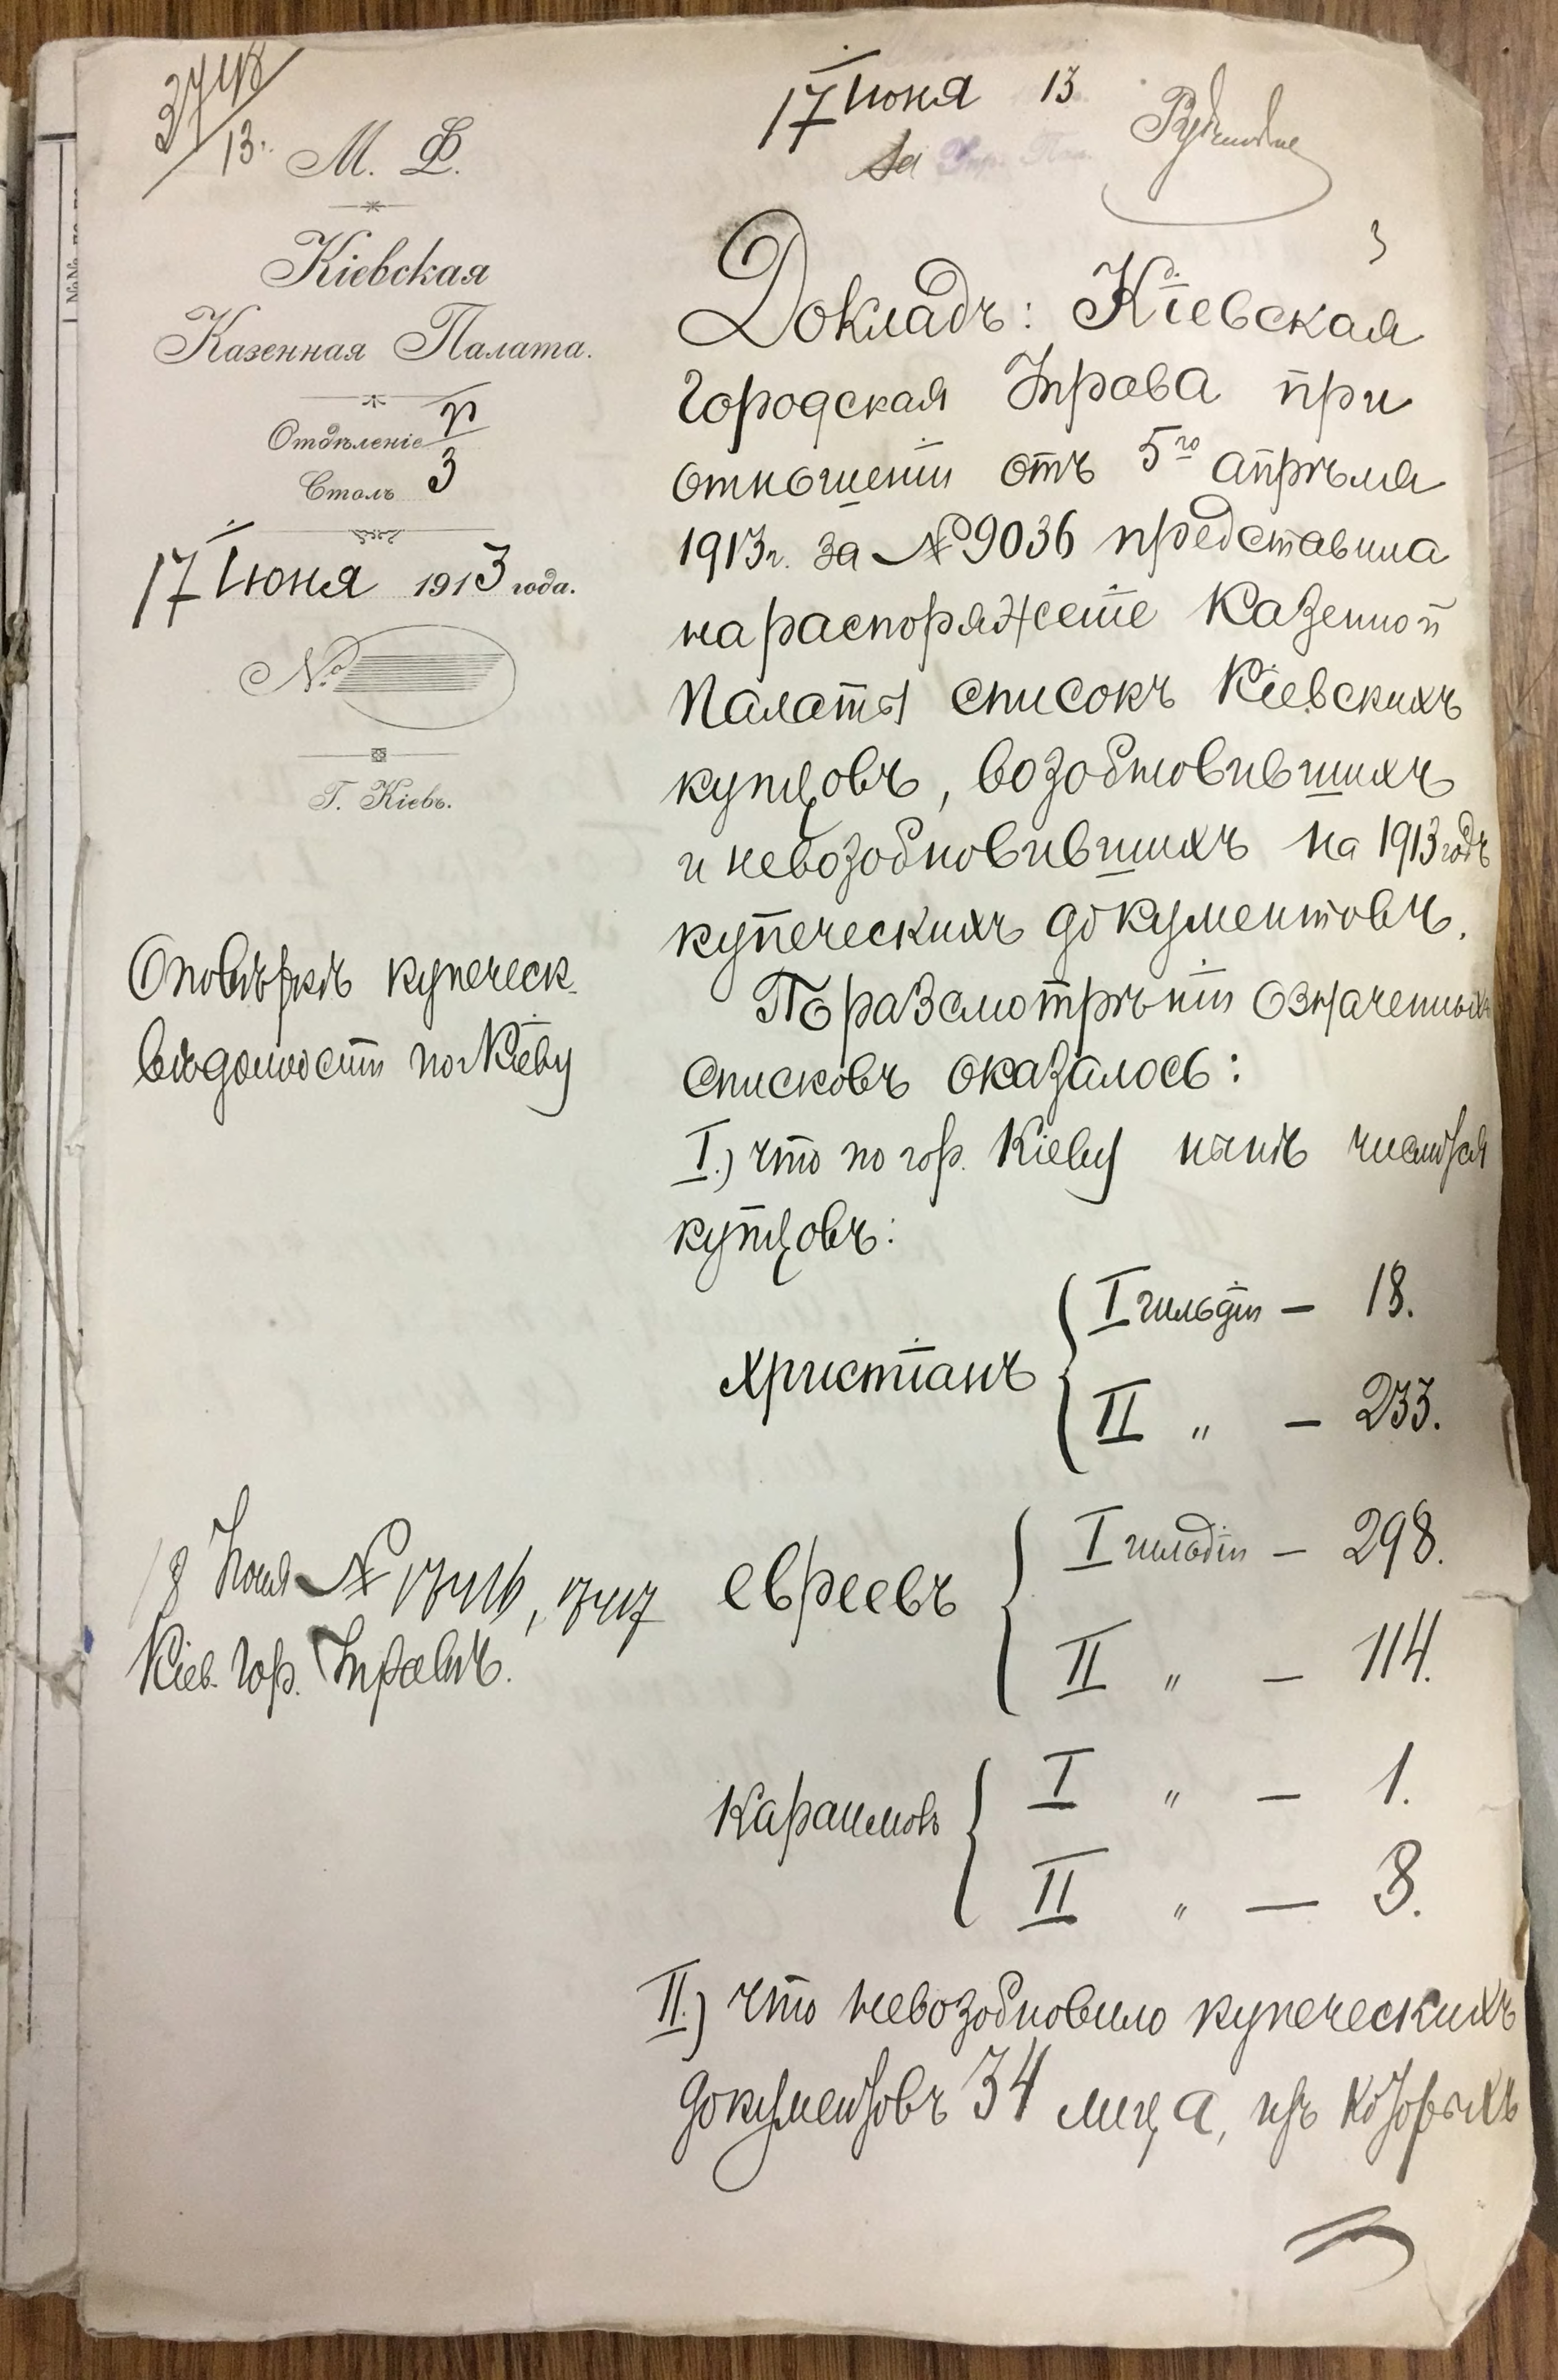 3748/13.
М. Ф.
Кіевская
Казенная Палата.
Отдѣленіе
Столъ 3
17 Іюня 1913 года.
№
Г. Кіевъ.
О повѣркѣ купеческ.
вѣдомости по г. Кіеву
18 Іюня № 17416, 17417
Кіев. Гор. Управѣ.
17 Іюня 13
За Упр. Пал.
3
Докладъ: Кіевская
Городская Управа при
отношеніи отъ 5го апрѣля
1913 г. за № 9036 представила
на распоряженіе Казенной
Палаты списокъ Кіевскихъ
купцовъ, возобновившихъ
и невозобновившихъ на 1913 годъ
купеческихъ документовъ.
По разсмотрѣніи означенныхъ
списковъ оказалось:
I.) что по гор. Кіеву нынѣ числится
купцовъ:
христіанъ { I гильдіи — 18.
II " — 233.
евреевъ { I гильдіи — 298.
II " — 114.
караимовъ { I " — 1.
II " — 8.
II.) что невозобновило купеческихъ
документовъ 34 лица, изъ которыхъ